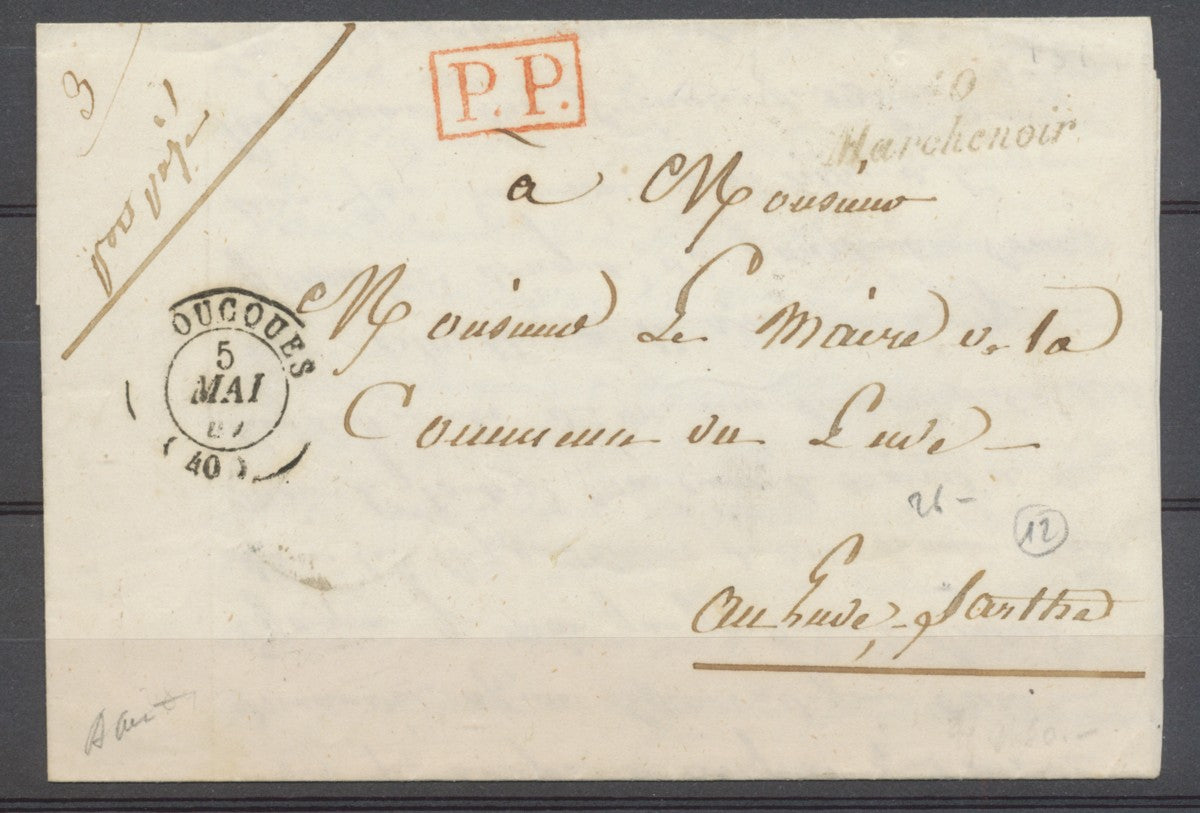 3
P.P.
40
Marchenoir
à Monsieur
Monsieur Le Maire de la
Commune du Lude
OUCQUES
5
MAI
(40)
26 -
12
au Lude, Sarthe